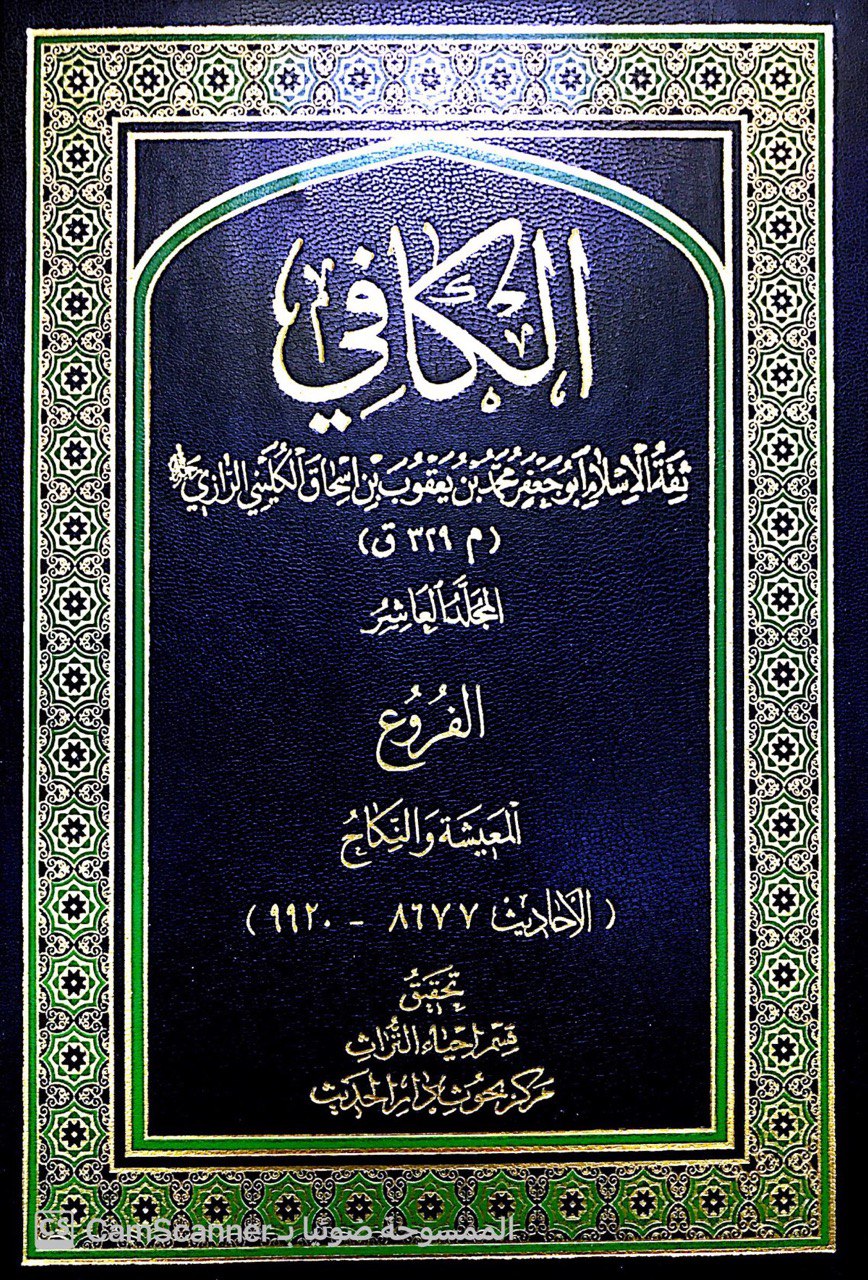 الكافي
ثِقَةُ الْإِسْلَامِ أَبُو جَعْفَر مُحَمَّدُ بْنُ يَعْقُوبَ بْنِ إِسْحَاقَ الْكُلَيْنِي الرَّازِي
(م ٣٢٩ ق)
المُجَلَّدُ الْعَاشِرُ
الفُرُوع
الْمَعِيشَة وَالنِّكَاحُ
(الأحاديث ٨٦٧٧ - ٩٩٢٠)
تَحْقِيقُ
قِسْم إِحْيَاء التُّرَاثِ
مَرْكَز بُحُوثِ دَارِ الْحَدِيث
CS الممسوحة ضوئيا بـ CamScanner